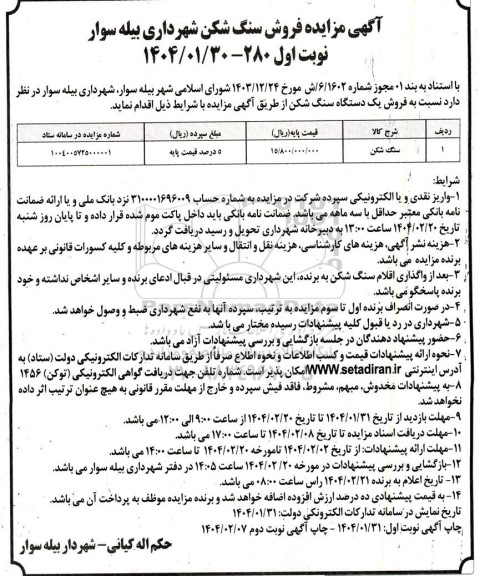 آگهی مزایده فروش سنگ شکن شهرداری بیله سوار
نوبت اول ۲۸۰- ۱۴۰۴/۰۱/۳۰
با استناد به بند ۰۱ مجوز شماره ۶/۱۶۰۲/ش مورخ ۱۴۰۳/۱۲/۲۴ شورای اسلامی شهر بیله سوار، شهرداری بیله سوار در نظر
دارد نسبت به فروش یک دستگاه سنگ شکن از طریق آگهی مزایده با شرایط ذیل اقدام نماید.
ردیف شرح کالا قیمت پایه(ریال) مبلغ سپرده (ریال) شماره مزایده در سامانه ستاد
۱ سنگ شکن ۱۵/۸۰۰/۰۰۰/۰۰۰ ۵ درصد قیمت پایه ۱۰۰۴۰۰۵۷۲۵۰۰۰۰۰۱
شرایط:
۱-واریز نقدی و یا الکترونیکی سپرده شرکت در مزایده به شماره حساب ۳۱۰۰۰۰۱۶۹۶۰۰۹ نزد بانک ملی و یا ارائه ضمانت
نامه بانکی معتبر حداقل با سه ماهه می باشد. ضمانت نامه بانکی باید داخل پاکت موم شده قرار داده و تا پایان روز شنبه
تاریخ ۱۴۰۴/۰۲/۲۰ ساعت ۱۳:۰۰ به دبیرخانه شهرداری تحویل و رسید دریافت گردد.
۲-هزینه نشر آگهی، هزینه های کارشناسی، هزینه نقل و انتقال و سایر هزینه های مربوطه و کلیه کسورات قانونی بر عهده
برنده مزایده می باشد.
۳-بعد از واگذاری اقلام سنگ شکن به برنده، این شهرداری مسئولیتی در قبال ادعای برنده و سایر اشخاص نداشته و خود
برنده پاسخگو می باشد.
۴-در صورت انصراف برنده اول تا سوم مزایده به ترتیب، سپرده آنها به نفع شهرداری ضبط و وصول خواهد شد.
۵-شهرداری در رد یا قبول کلیه پیشنهادات رسیده مختار می باشد.
۶-حضور پیشنهاد دهندگان در جلسه بازگشایی و بررسی پیشنهادات آزاد می باشد.
۷-نحوه ارائه پیشنهادات قیمت و کسب اطلاعات و نحوه اطلاع صرفاً از طریق سامانه تدارکات الکترونیکی دولت (ستاد) به
آدرس اینترنتی WWW.setadiran.ir امکان پذیر است. شماره تلفن جهت دریافت گواهی الکترونیکی (توکن) ۱۴۵۶
۸-به پیشنهادات مخدوش، مبهم، مشروط، فاقد فیش سپرده و خارج از مهلت مقرر قانونی به هیچ عنوان ترتیب اثر داده
نخواهد شد.
۹-مهلت بازدید از تاریخ ۱۴۰۴/۰۱/۳۱ تا تاریخ ۱۴۰۴/۰۲/۲۰ از ساعت ۹:۰۰ الی ۱۲:۰۰ می باشد.
۱۰-مهلت دریافت اسناد مزایده تا تاریخ ۱۴۰۴/۰۲/۰۸ تا ساعت ۱۷:۰۰ می باشد.
۱۱-مهلت ارائه پیشنهادات: از تاریخ ۱۴۰۴/۰۲/۰۲ تا مورخه ۱۴۰۴/۰۲/۲۰ تا ساعت ۱۴:۰۰ می باشد.
۱۲-بازگشایی و بررسی پیشنهادات در مورخه ۱۴۰۴/۰۲/۲۰ ساعت ۱۴:۰۵ در دفتر شهرداری بیله سوار می باشد.
۱۳- تاریخ اعلام به برنده ۱۴۰۴/۰۲/۲۱ راس ساعت ۰۸:۰۰ می باشد.
۱۴- به قیمت پیشنهادی ده درصد ارزش افزوده اضافه خواهد شد و برنده مزایده موظف به پرداخت آن می باشد.
تاریخ نمایش در سامانه تدارکات الکترونیکی دولت: ۱۴۰۴/۰۱/۳۱
چاپ آگهی نوبت اول: ۱۴۰۴/۰۱/۳۱ - چاپ آگهی نوبت دوم ۱۴۰۴/۰۲/۰۷
حکم اله کیانی- شهردار بیله سوار